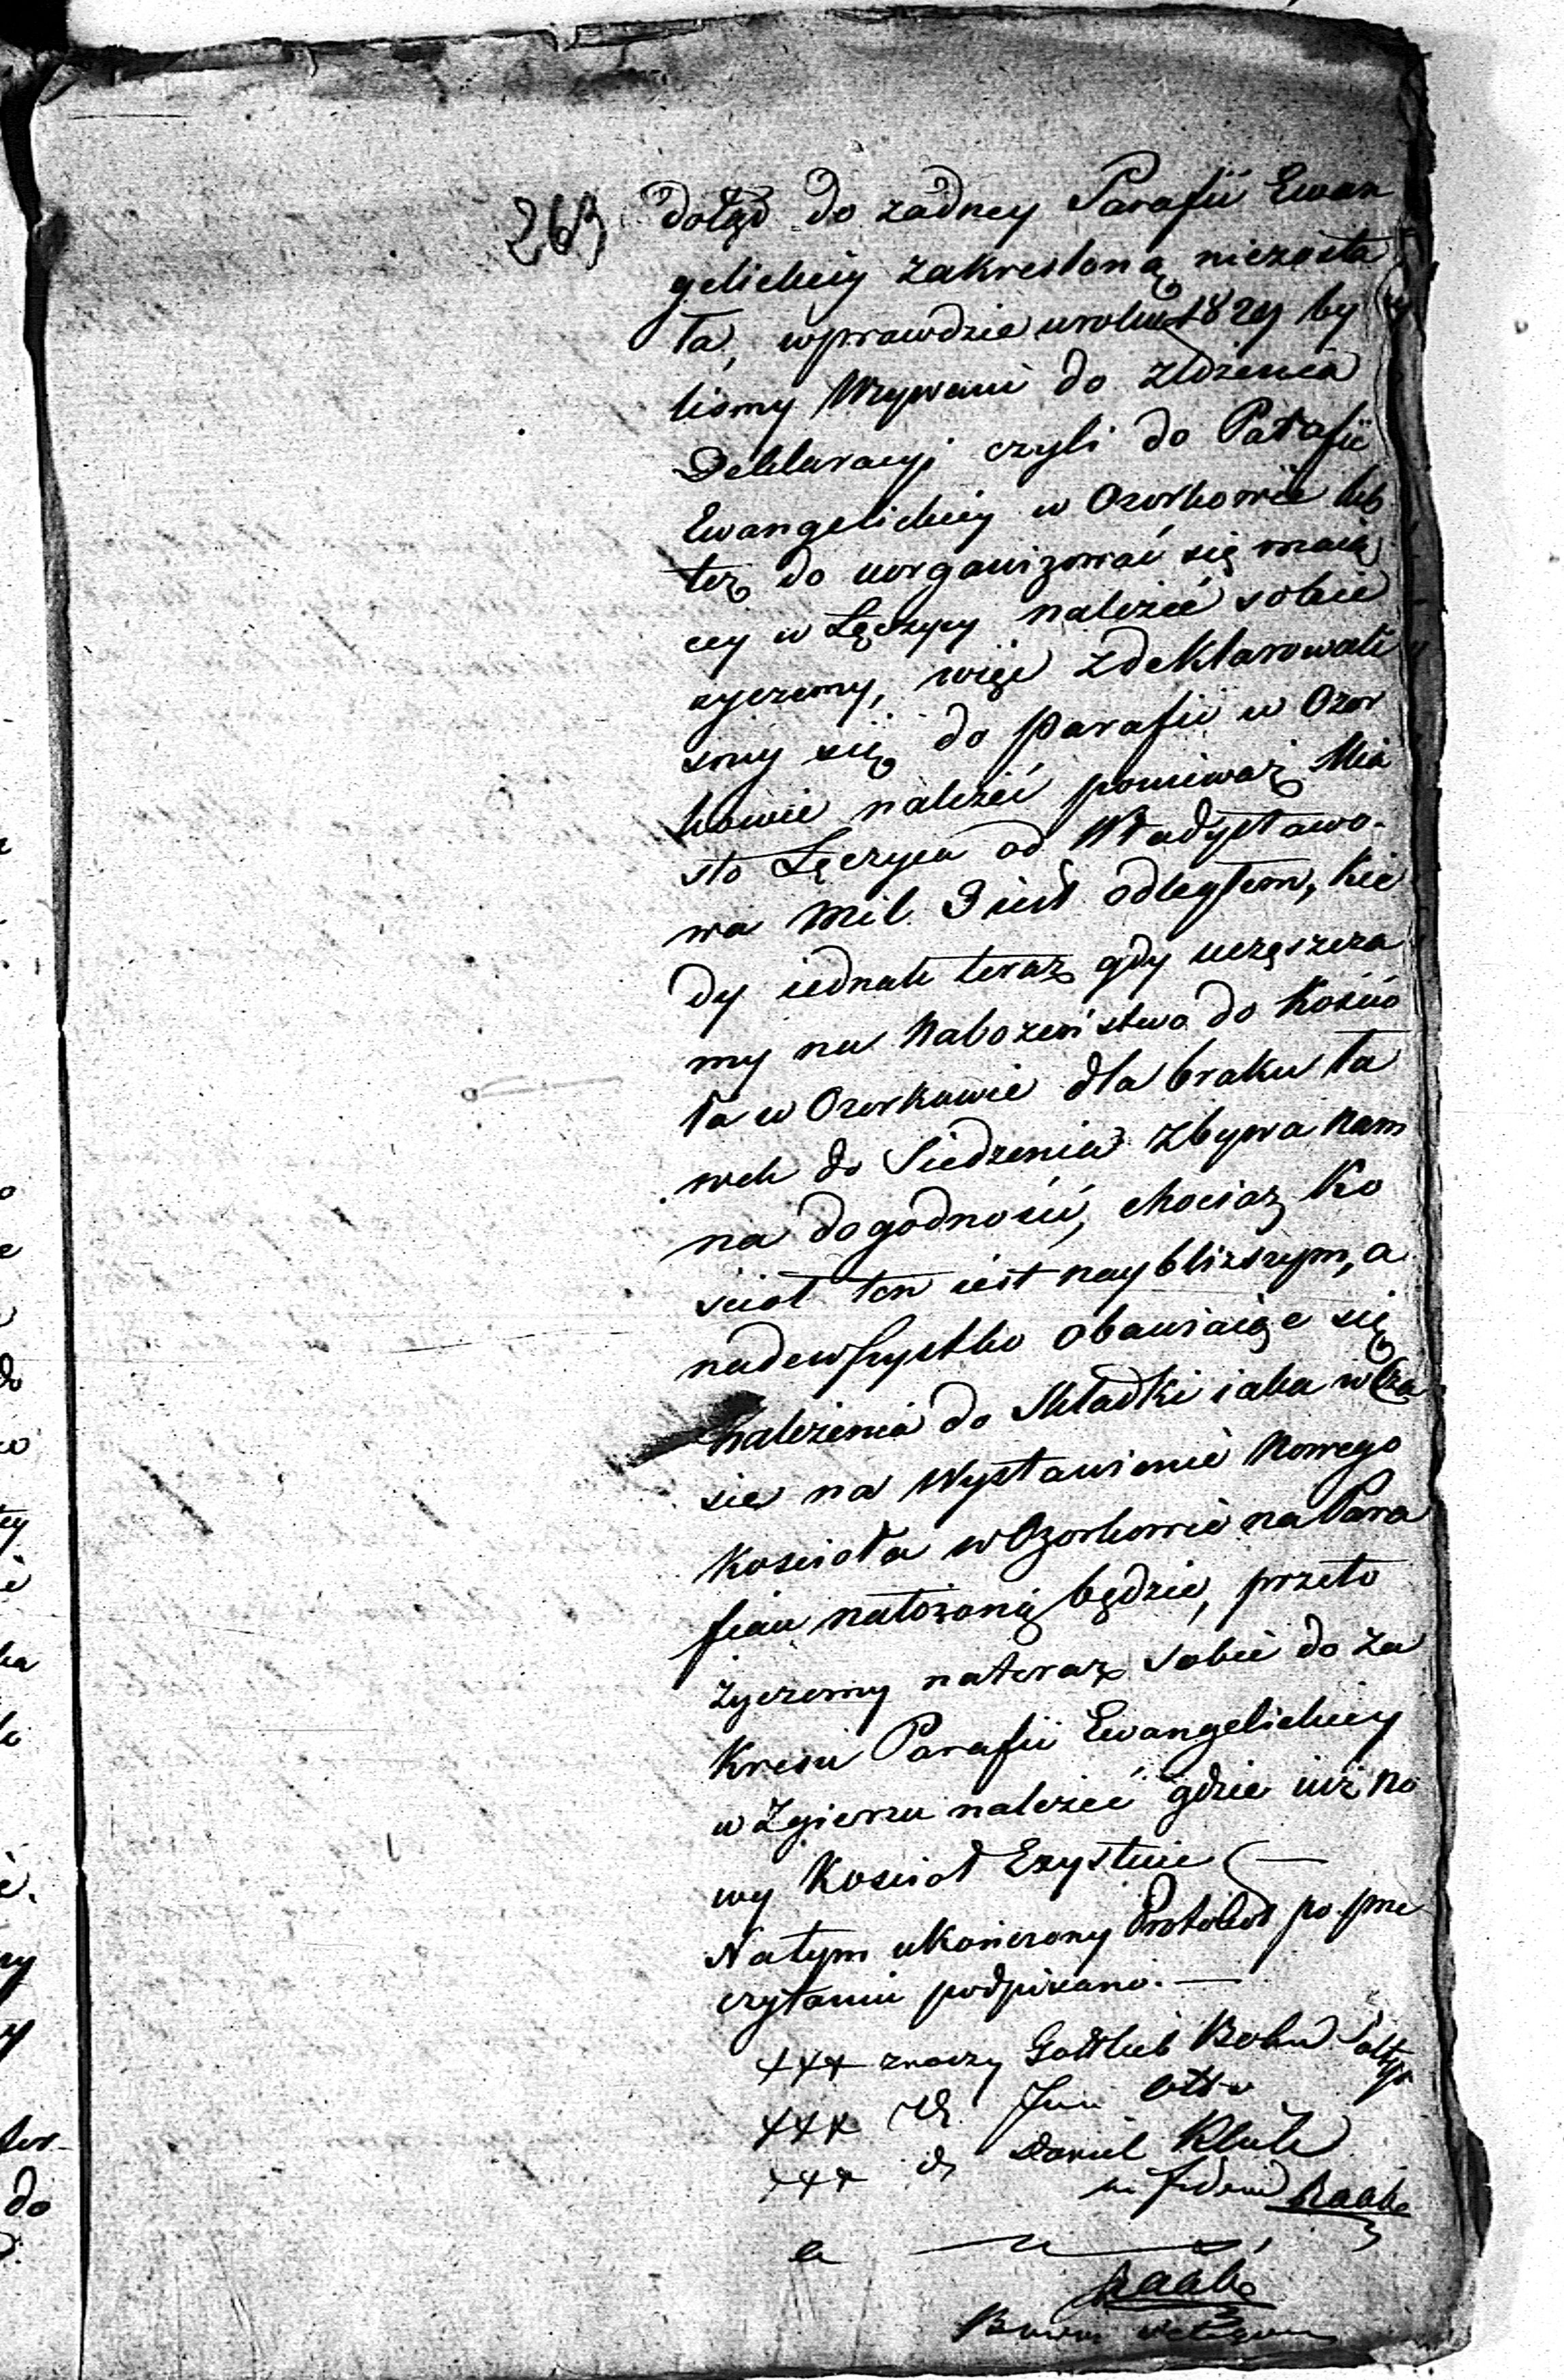 263
dotąd do żadney Parafii Ewan
gelickiey zakresloną niezosta
ła, wprawdzie w roku 1829 by
lismy Wzywani do złożenia
Deklaracyi czyli do Parafii
Ewangelickiey w Ozorkowie lub
też do uorganizować się maią
cey w Łęczycy należeć sobie
życzemy, więc zdeklarowali
smy się do Parafii w Ozor
kowie należeć poniewaz Mia
sto Łęczyca od Władysławo-
wa Mil 3 iest odległem, kie
dy iednak teraz gdy uczęszcza
my na Nabożeństwo do Kościo
ła w Ozorkowie dla braku ła
wek do Siedzenia zbywa nam
na dogodności, chociaz Ko
sciół ten iest naybliższym, a
nadewszystko obawiaiąc się
należenia do Składki iaka w Cza
sie na Wystawienie Nowego
Koscioła w Ozorkowie na Para
fian nałożoną będzie, przeto
życzemy na teraz sobie do za
kresu Parafii Ewangelickiey
w Zgierzu należeć gdzie iuż no
wy Kosciół Exystuie —
Na tym ukończony Protokół po prze
czytaniu podpisano. —
+++ znaczy Gottlieb Bohn Sołtys
+++ Otto
+++ Daniel Kluk
in fidem Raabe
Raabe